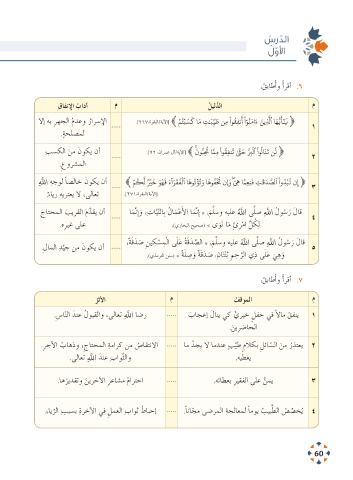 الدّرسُ
الأوّل
٦. أقرأُ وأُطابق.
م الدّليلُ م آدابُ الإنفاقِ
١ ﴿ يَٰٓأَيُّهَا ٱلَّذِينَ ءَامَنُوٓاْ أَنفِقُواْ مِن طَيِّبَٰتِ مَا كَسَبۡتُمۡ ﴾ ..... الإسرارُ وعدمُ الجهرِ به إلّا
لمصلحةٍ.
٢ ﴿ لَن تَنَالُواْ ٱلۡبِرَّ حَتَّىٰ تُنفِقُواْ مِمَّا تُحِبُّونَ ﴾ ..... أن يكونَ من الكسبِ
المشروعِ.
٣ ﴿ إِن تُبۡدُواْ ٱلصَّدَقَٰتِ فَنِعِمَّا هِيَۖ وَإِن تُخۡفُوهَا وَتُؤۡتُوهَا ٱلۡفُقَرَآءَ فَهُوَ خَيۡرٞ لَّكُمۡ ﴾ ..... أن يكونَ خالصاً لوجهِ اللهِ
تعالى، لا يعتريه رياءٌ.
٤ قالَ رَسُولُ اللهِ صلّى اللهُ عليه وسلّم: « إنَّما الأعْمَالُ بِالنِّيَّاتِ، وَإِنَّمَا ..... أن يقدِّمَ القريبَ المحتاجَ
لِكُلِّ امْرِئٍ مَا نَوَى » (صحيح البخاري). على غيرِه.
٥ قالَ رَسُولُ اللهِ صلّى اللهُ عليه وسلّم: « الصَّدَقَةُ عَلَى الْمِسْكِينِ صَدَقَةٌ، ..... أن يكونَ من جيِّدِ المالِ.
وَهِيَ عَلَى ذِي الرَّحِمِ ثِنْتَانِ: صَدَقَةٌ وَصِلَةٌ » (سنن الترمذي).
٧. أقرأُ وأُطابق.
م الموقفُ م الأثرُ
١ ينفقُ مالاً في حفلٍ خيريٍّ كي ينالَ إعجابَ ..... رضا اللهِ تعالى، والقبولُ عندَ النّاسِ.
الحاضرينَ.
٢ يعتذرُ من السّائلِ بكلامٍ طيّبٍ عندما لا يجدُ ما ..... الانتقاصُ من كرامةِ المحتاجِ، وذهابُ الأجرِ
يعطيه. والثّوابِ عندَ اللهِ تعالى.
٣ يمنُّ على الفقيرِ بعطائه. ..... احترامُ مشاعرِ الآخرينَ وتقديرُها.
٤ يُخصّصُ الطّبيبُ يوماً لمعالجةِ المرضى مجّاناً. ..... إحباطُ ثوابِ العملِ في الآخرةِ بسببِ الرّياءِ.
60